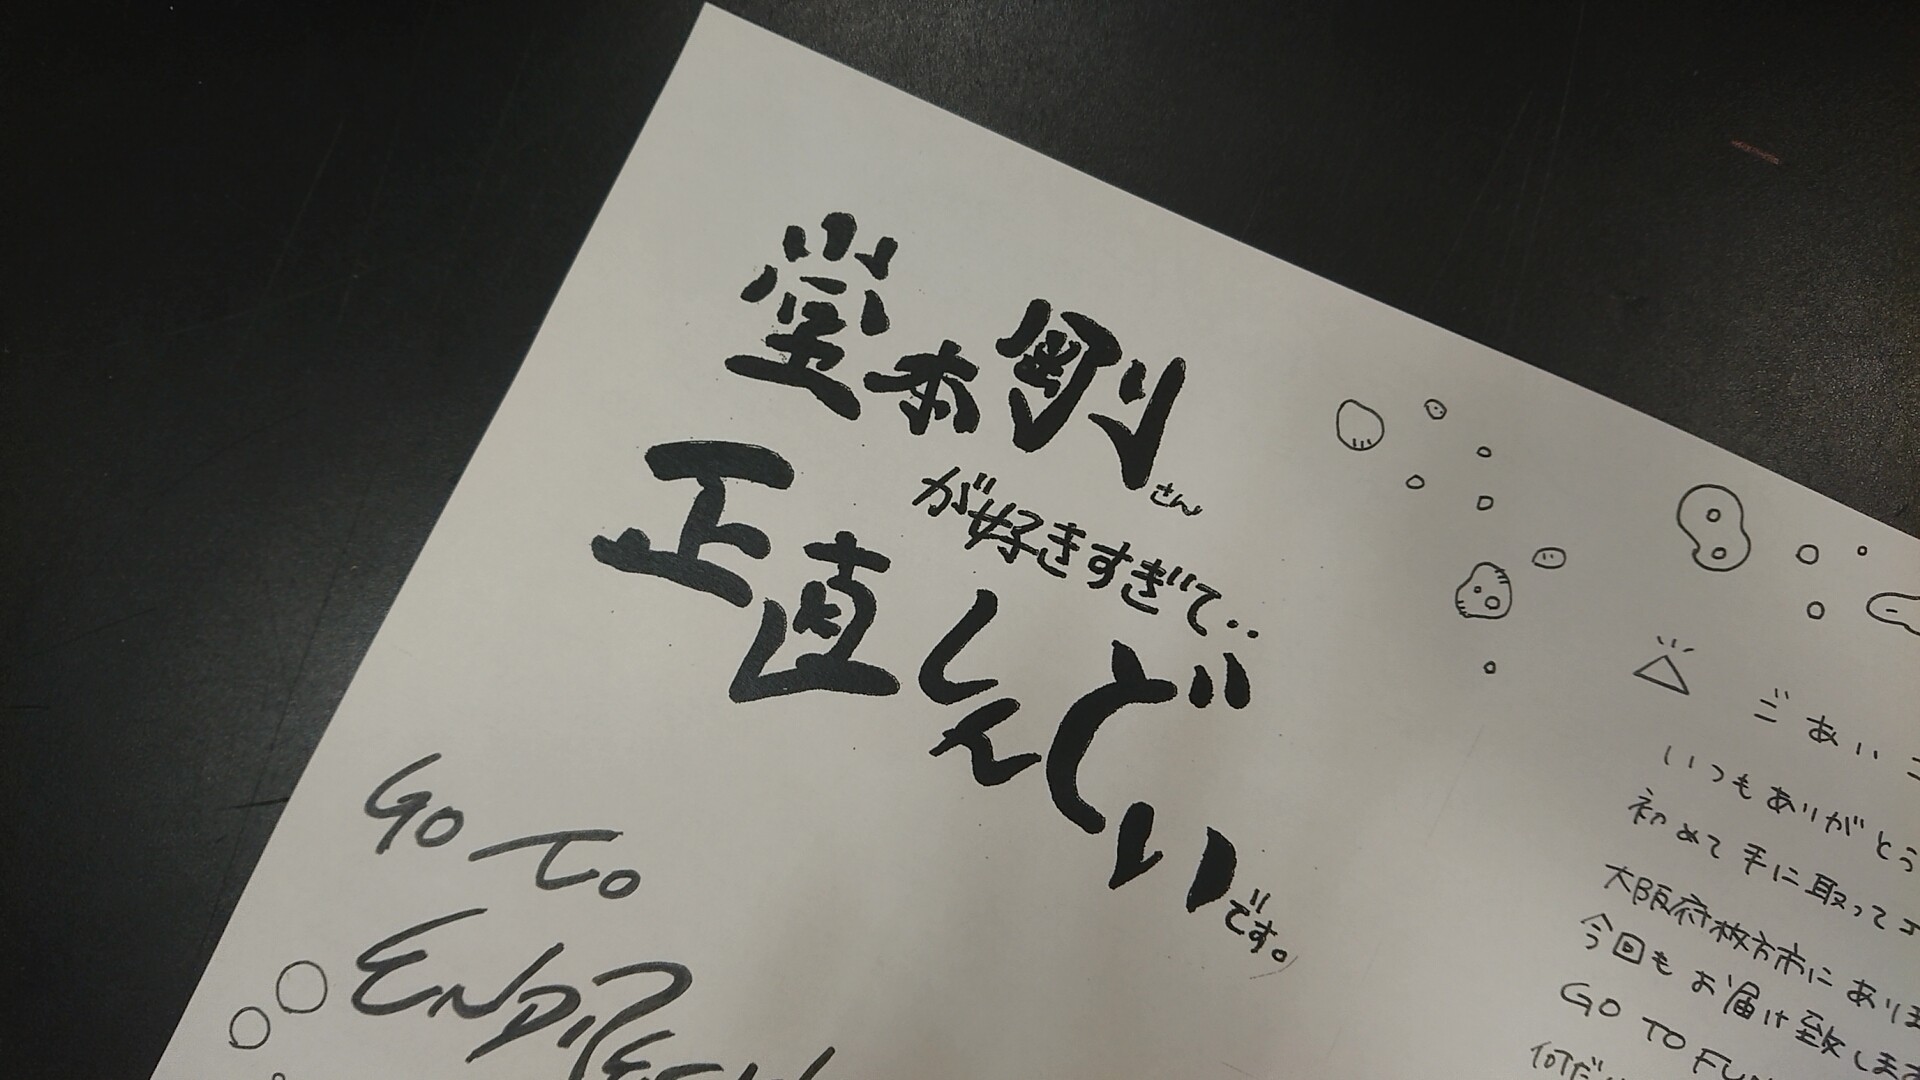 堂本剛さん
が好きすぎて‥
正直しんどいです。
GO TO
ごあい
いつもありがとう
初めて手に取って
大阪府枚方市にあり
今回もお届け致します
GO TO FUN
何だ